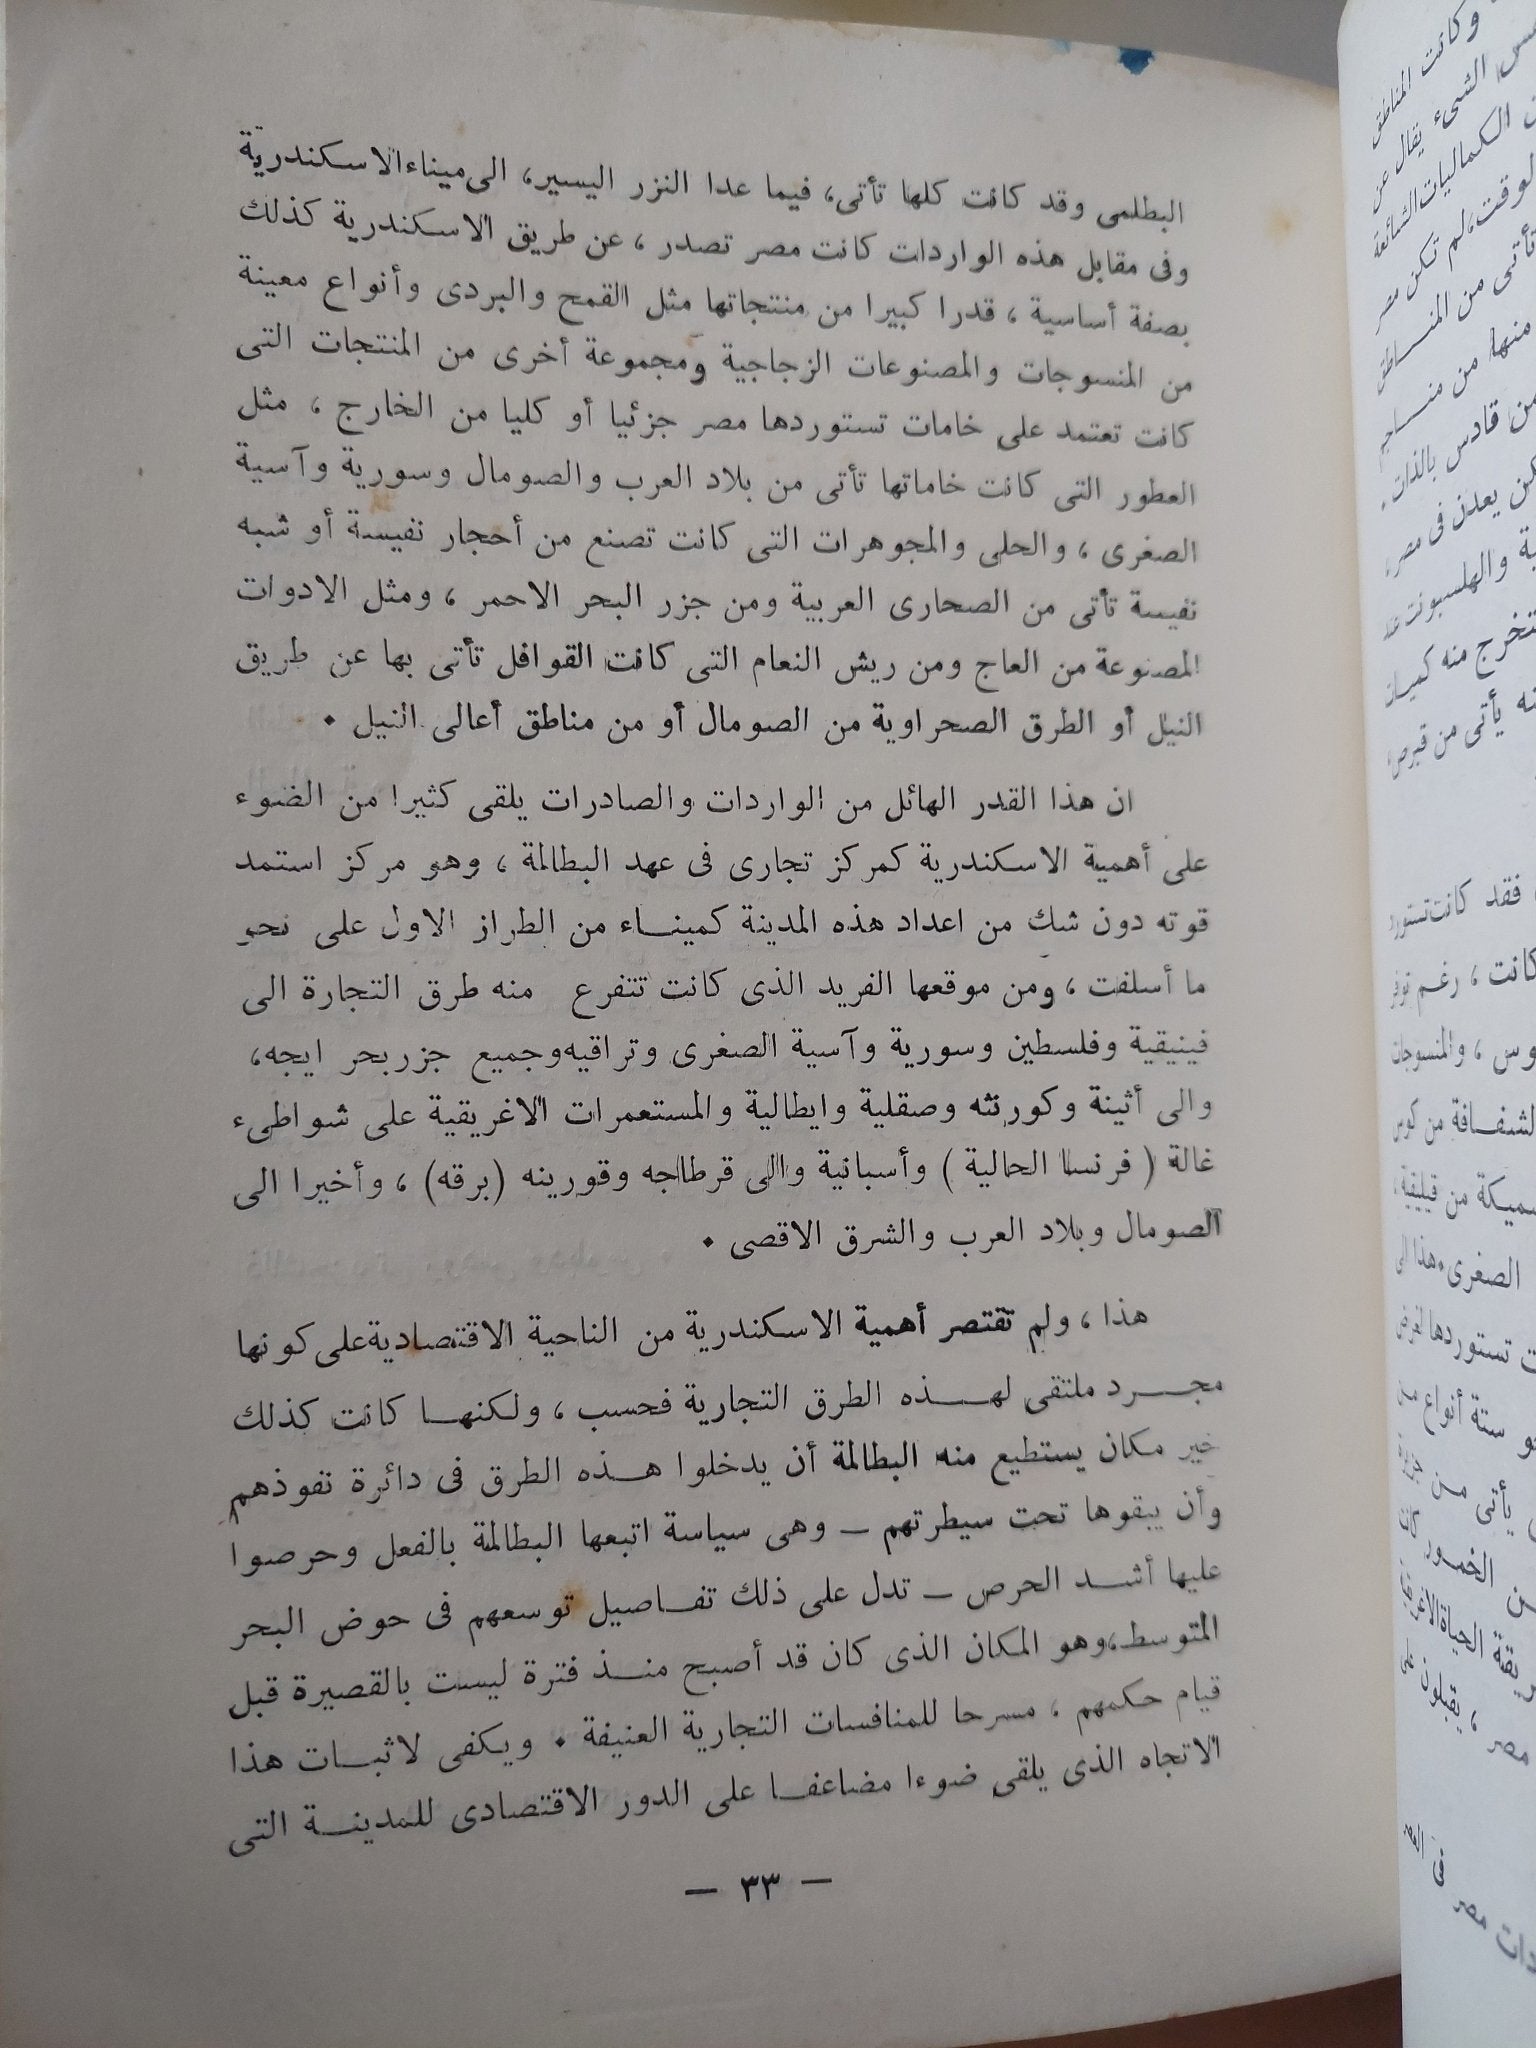 البطلمى وقد كانت كلها تأتى، فيما عدا النزر اليسير، الى ميناء الاسكندرية
وفى مقابل هذه الواردات كانت مصر تصدر ، عن طريق الاسكندرية كذلك
بصفة أساسية ، قدرا كبيرا من منتجاتها مثل القمح والبردى وأنواع معينة
من المنسوجات والمصنوعات الزجاجية ومجموعة أخرى من المنتجات التى
كانت تعتمد على خامات تستوردها مصر جزئيا أو كليا من الخارج ، مثل
العطور التى كانت خاماتها تأتى من بلاد العرب والصومال وسورية وآسية
الصغرى ، والحلى والمجوهرات التى كانت تصنع من أحجار نفيسة أو شبه
نفيسة تأتى من الصحارى العربية ومن جزر البحر الاحمر ، ومثل الادوات
المصنوعة من العاج ومن ريش النعام التى كانت القوافل تأتى بها عن طريق
النيل أو الطرق الصحراوية من الصومال أو من مناطق أعالى النيل .
ان هذا القدر الهائل من الواردات والصادرات يلقى كثيرا من الضوء
على أهمية الاسكندرية كمركز تجارى فى عهد البطالمة ، وهو مركز استمد
قوته دون شك من اعداد هذه المدينة كمينـاء من الطراز الاول على نحو
ما أسلفت ، ومن موقعها الفريد الذى كانت تتفرع منه طرق التجارة الى
فينيقية وفلسطين وسورية وآسية الصغرى وتراقيه وجميع جزر بحر ايجه،
والى أثينة وكورنثه وصقلية وايطالية والمستعمرات الاغريقية على شواطىء
غالة ( فرنسا الحالية ) وأسبانية والى قرطاجه وقورينه (برقه) ، وأخيرا الى
الصومال وبلاد العرب والشرق الاقصى .
هذا ، ولم تقتصر أهمية الاسكندرية من الناحية الاقتصادية على كونها
مجـرد ملتقى لهـذه الطرق التجارية فحسب ، ولكنهـا كانت كذلك
خير مكان يستطيع منه البطالمة أن يدخلوا هـذه الطرق فى دائرة نفوذهم
وأن يبقوها تحت سيطرتهم — وهى سياسة اتبعها البطالمة بالفعل وحرصوا
عليها أشـد الحرص — تدل على ذلك تفـاصيل توسعهم فى حوض البحر
المتوسط، وهو المكان الذى كان قد أصبح منـذ فترة ليست بالقصيرة قبل
قيام حكمهم ، مسرحا للمنافسات التجارية العنيفة . ويكفى لاثبـات هذا
الاتجاه الذى يلقى ضوءا مضاعفـا على الدور الاقتصادى للمدينـة التى
— ٣٣ —
وكانت المناطق
الشىء يقال عن
الكماليات الشائعة
لم تكن مصر
تأتى من المنـاطق
منها من منـاجم
من قادس بالذات .
يعدن فى مصر
والهلسبونت
منه كميات
يأتى من قبرص
فقد كانت تستورد
كانت ، رغم توفر
، والمنسوجات
الشفـافة من كوس
من قيليقية
الصغرى. هذا الى
تستوردها
ستة أنواع
يأتى مـن
الخمـور
الحياة
، يقبلون على
مصر